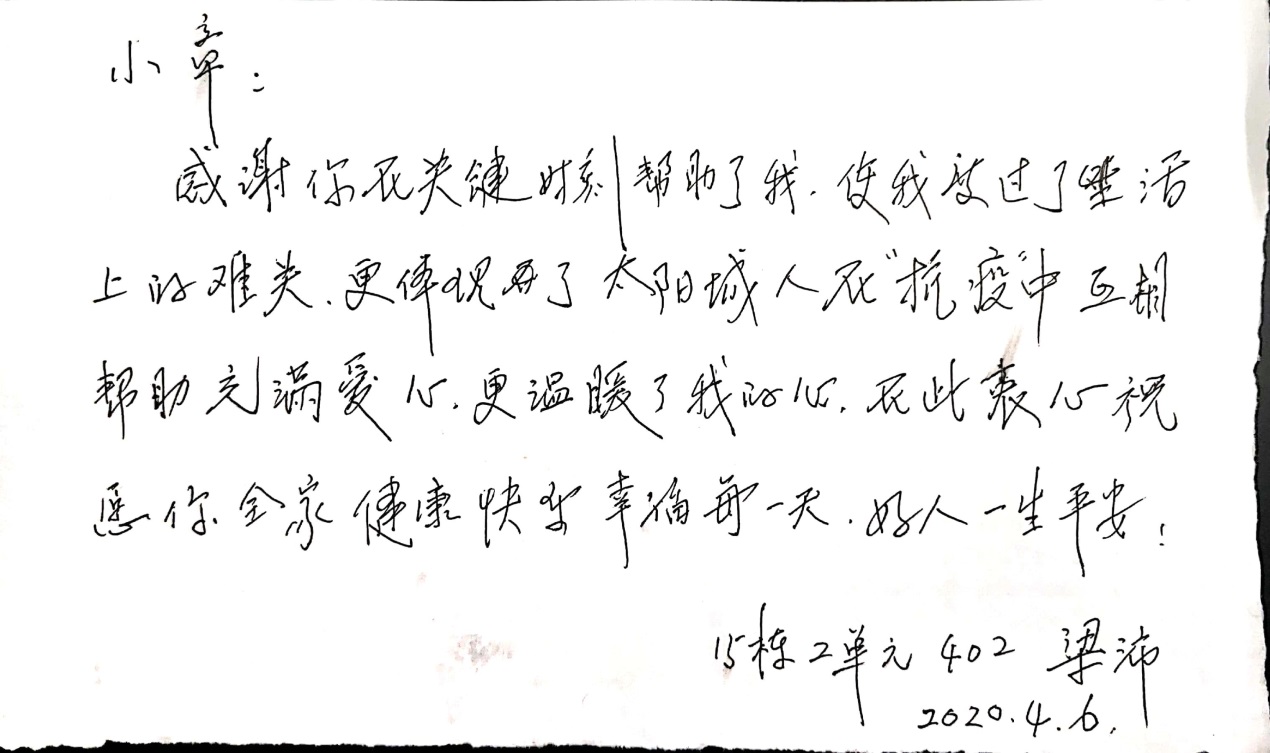 小章：
感谢你在关键时刻帮助了我，使我度过了生活
上的难关，更体现出了太阳城人在“抗疫”中互相
帮助充满爱心，更温暖了我的心，在此衷心祝
愿你全家健康快乐幸福每一天，好人一生平安！
15栋2单元 402 梁沛
2020.4.6.